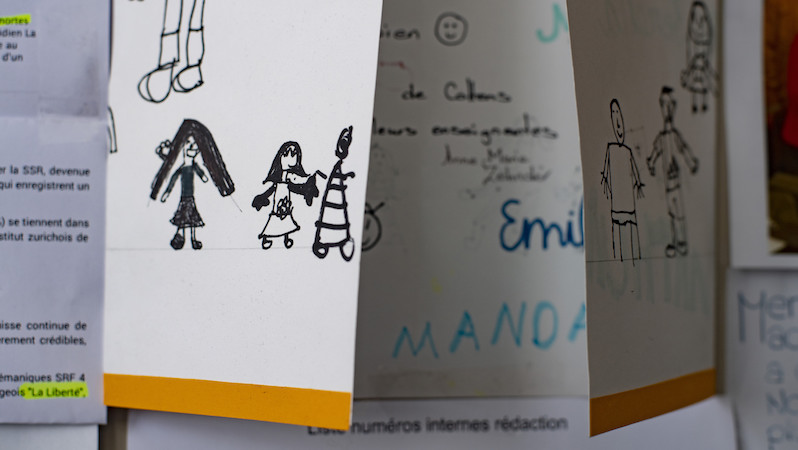 nortes
dien La
e au
d'un
er la SSR, devenue
qui enregistrent un
) se tiennent dans
stitut zurichois de
uisse continue de
èrement crédibles,
émaniques SRF 4
geois "La Liberté",
ien
de Cottens
leurs enseignantes
Anne Marie
Emil
MANDA
Liste numéros internes rédaction
Mer